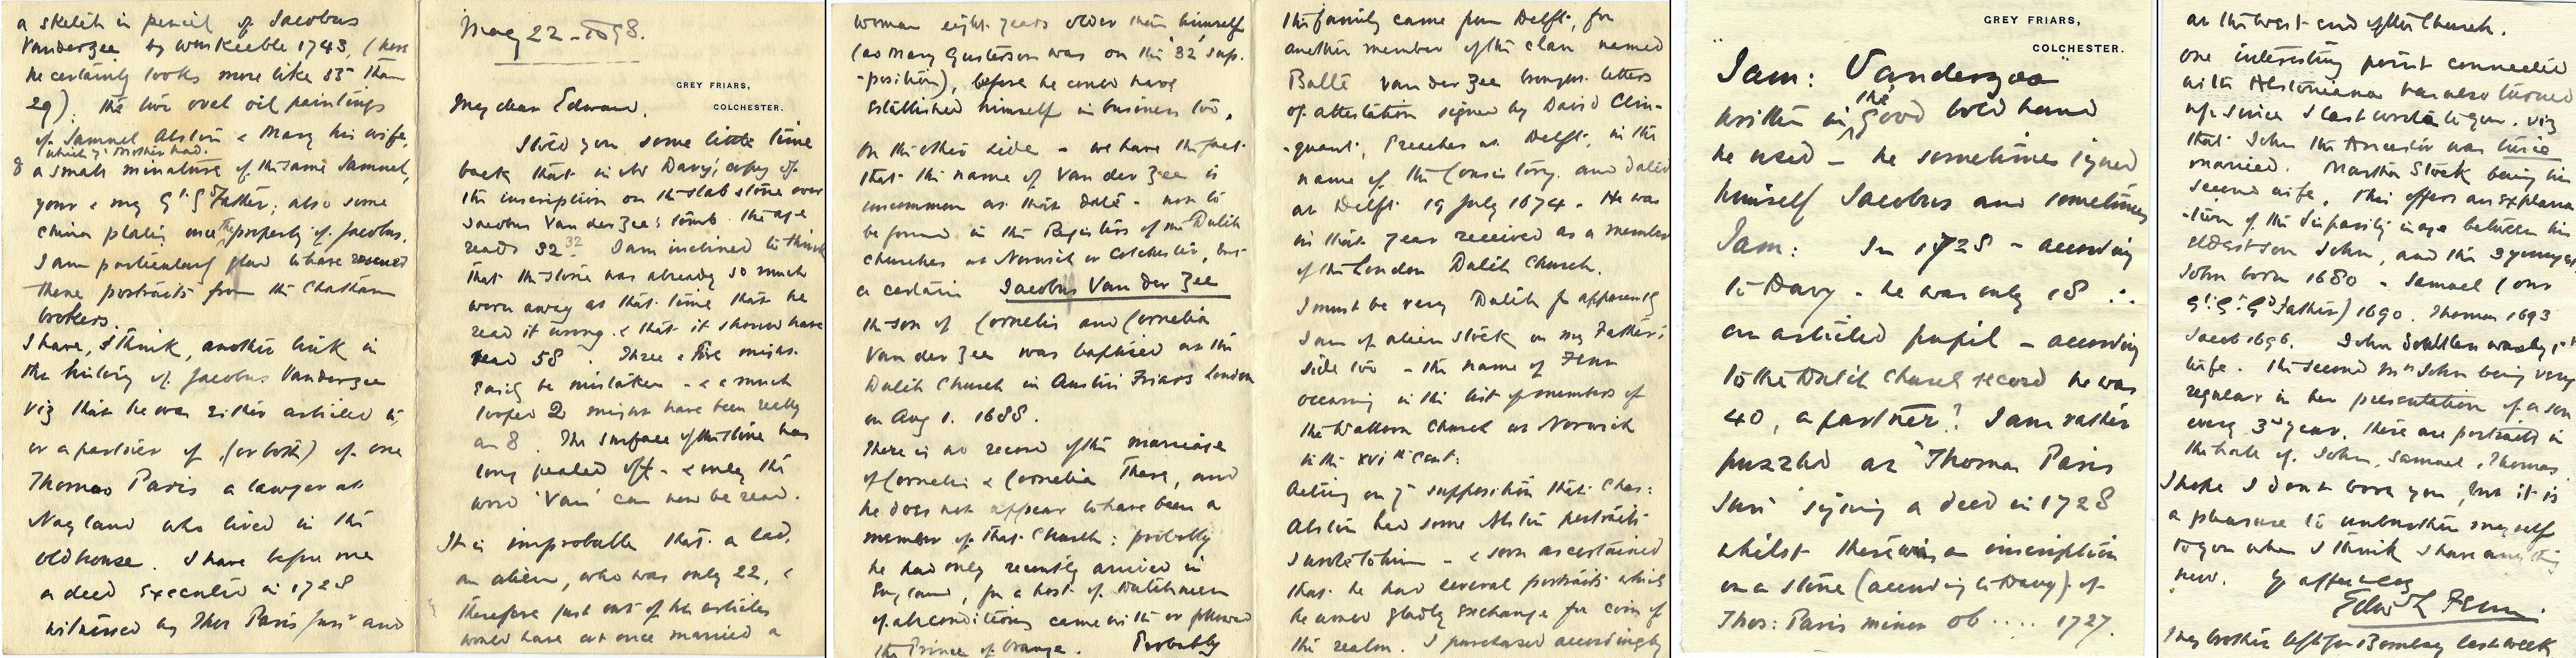 May 22 - 1898.
GREY FRIARS,
COLCHESTER.
My dear Edward,
I told you some little time
back that in Mr Davy's copy of
the inscription on the slab stone over
Jacobus Van der Zee's tomb the age
reads 32 32 I am inclined to think
that the stone was already so much
worn away at that time that he
read it wrong & that it should have
read 58. Three & five might
easily be mistaken - & a much
looped 2 might have been really
an 8. The surface of the stone has
long pealed off - & only the
word 'Van' can now be read.
It is improbable that a lad,
an alien, who was only 22, &
therefore just out of his articles
would have at once married a
woman eight years older than himself
(as Mary Gusterson was on the '32' sup-
-position), before he could have
established himself in business too.
On the other side - we have the fact
that the name of Van der Zee is
uncommon at that date - not to
be found in the Registers of the Dutch
churches at Norwich or Colchester, but
a certain Jacobus Van der Zee
the son of Cornelis and Cornelia
Van der Zee was baptised at the
Dutch Church in Austin Friars London
on Aug 1. 1688.
There is no record of the marriage
of Cornelis & Cornelia there, and
he does not appear to have been a
member of that Church: probably
he had only recently arrived in
England, for a host of Dutchmen
of all conditions came with or followed
the Prince of Orange. Probably
the family came from Delft, for
another member of the clan named
Balte Van der Zee brought letters
of attestation signed by David Clin-
-quant, Preacher at Delft, in the
name of the Consistory and dated
at Delft 19 July 1674. He was
in that year received as a member
of the London Dutch Church.
I must be very Dutch for apparently
I am of alien stock on my Father's
side too - the name of Fenn
occuring in the list of members of
the Walloon Church at Norwich
in the XVIth cent:
Acting on yr supposition that Chas:
Alston had some Alston portraits
I wrote to him - & soon ascertained
that he had several portraits which
he would gladly exchange for coin of
the realm. I purchased accordingly
a sketch in pencil of Jacobus
Vanderzee by Wm Keeble 1743, (here
he certainly looks more like 55 than
29). The two oval oil paintings
of Samuel Alston & Mary his wife,
(which yr brother had.
& a small miniature of the same Samuel,
your & my Gt. Gd Father; also some
china plates once the property of Jacobus.
I am particularly glad to have rescued
these portraits from the Chatham
brokers.
I have, I think, another link in
the history of Jacobus Vanderzee
viz that he was either articled to,
or a partner of, (or both) of one
Thomas Paris a lawyer at
Nayland who lived in the
old house. I have before me
a deed executed in 1728
witnessed by Thos Paris Junr and
GREY FRIARS,
COLCHESTER.
"Jam: Vanderzee"
written in the good bold hand
he used - he sometimes signed
himself Jacobus and sometimes
Jam: In 1728 - according
to Davy - he was only 18 ∴
an articled pupil - according
to the Dutch Church record he was
40, a partner? I am rather
puzzled at 'Thomas Paris
Junr' signing a deed in 1728
whilst there was an inscription
on a stone (according to Davy) of
Thos: Paris minor ob .... 1727.
at the west end of the Church.
One interesting point connected
with Alstoniana has also turned
up since I last wrote to you. viz
that John the Ancestor was twice
married. Martha Stock being his
second wife, this offers an explana-
-tion of the disparity in age between his
eldest son John, and the 3 younger
John born 1680 - Samuel (our
Gt. Gt. Gd Father) 1690. Thomas 1693
Jacob 1696. John 1st
wife. The second Mrs John being very
regular in her presentation of a son
every 3rd year. There are portraits in
the hall of John, Samuel, Thomas
I hope I don't bore you, but it is
a pleasure to unburthen myself
to you when I think I have anything
new. Yr affecly
Edith L Fenn.
My brother left for Bombay last week